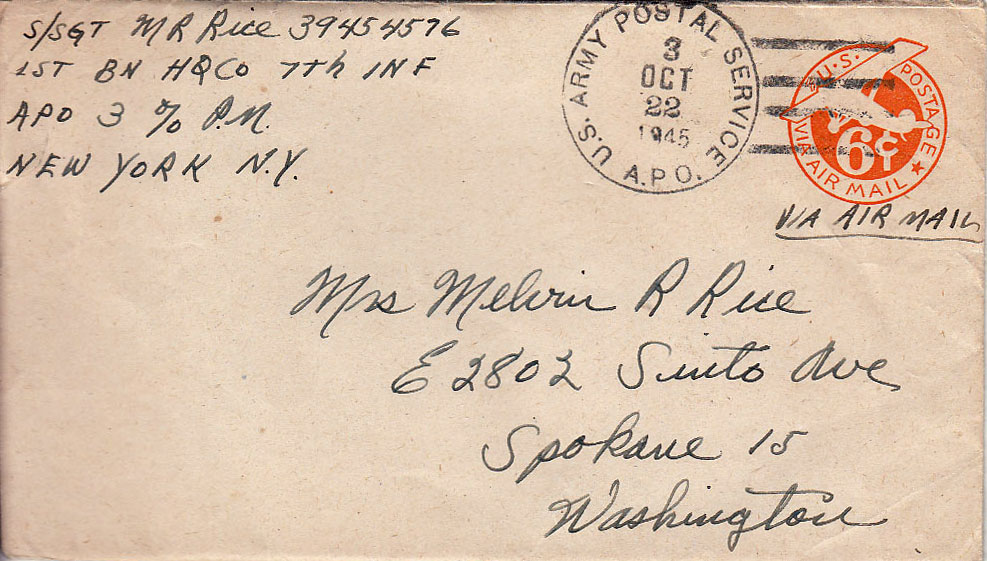 S/SGT M R Rice 39454576
1ST BN HQ Co 7th INF
APO 3 % P.M.
NEW YORK N.Y.
U.S. ARMY POSTAL SERVICE
3
OCT
22
1945
A.P.O.
U.S. POSTAGE
6¢
VIA AIR MAIL
VIA AIR MAIL
Mrs Melvin R Rice
E 2802 Sinto Ave
Spokane 15
Washington